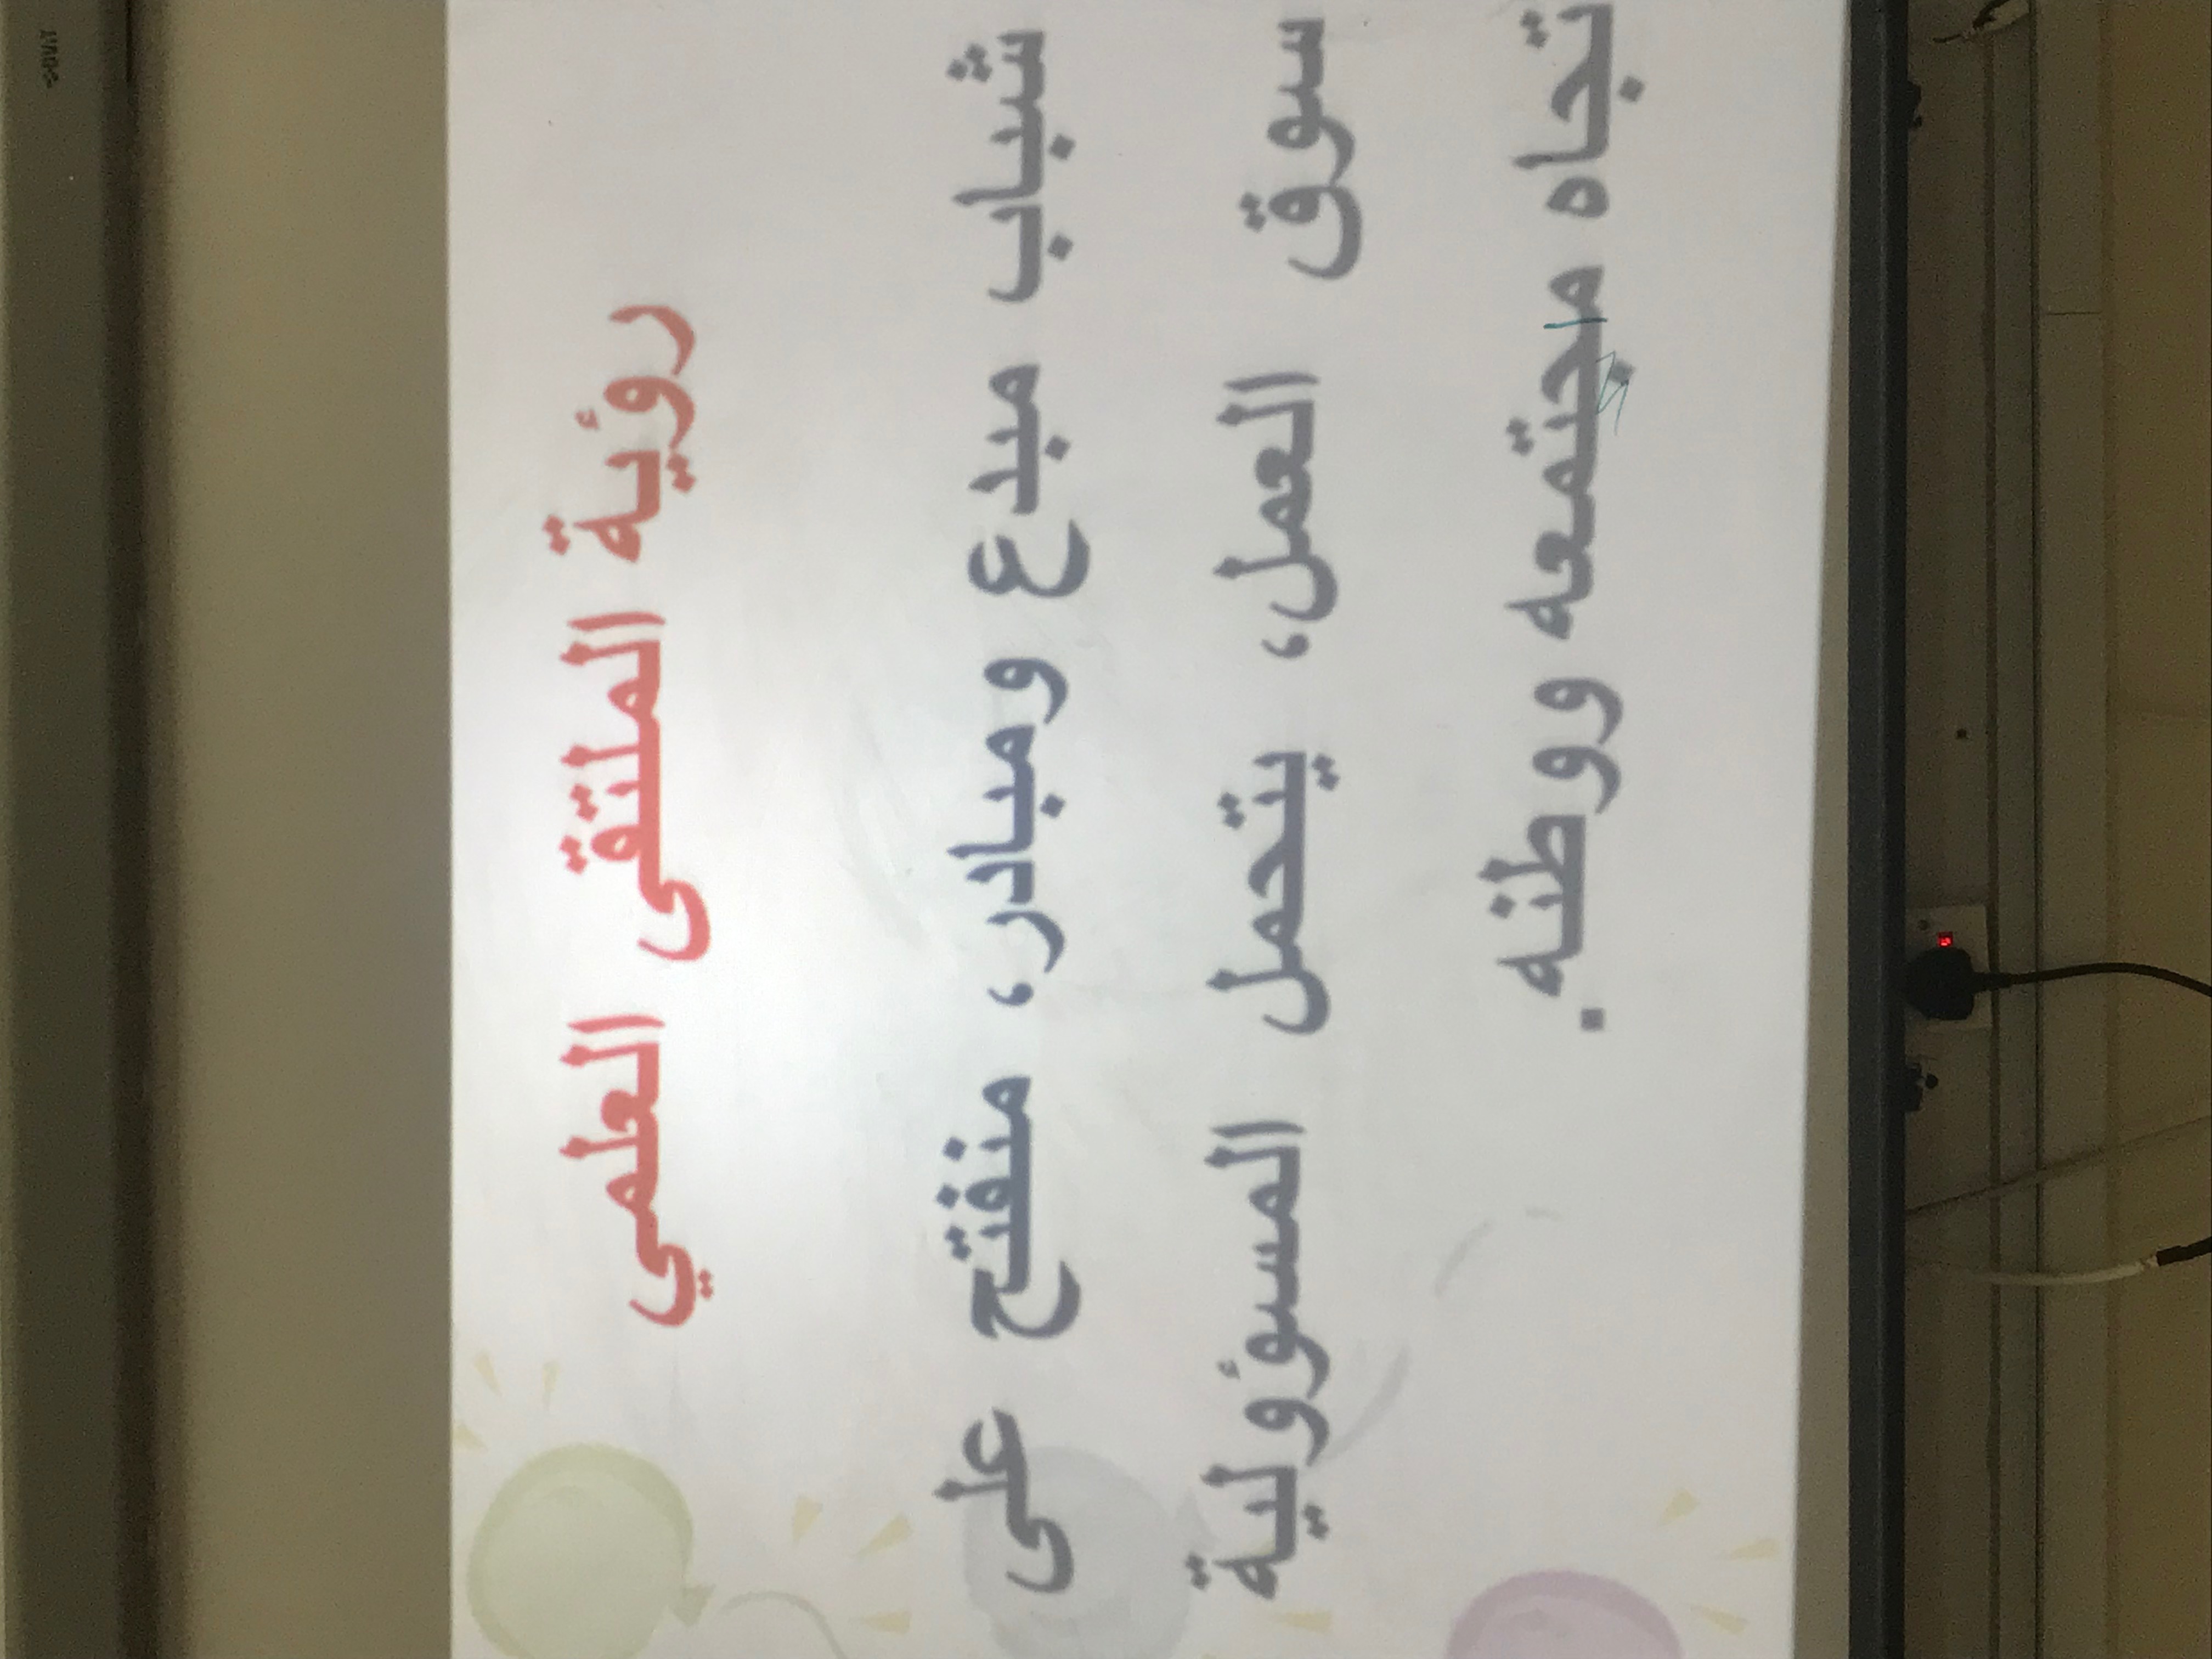 رؤية الملتقى العلمي
شباب مبدع ومبادر، منفتح على
سوق العمل، يتحمل المسؤولية
تجاه مجتمعه ووطنه.